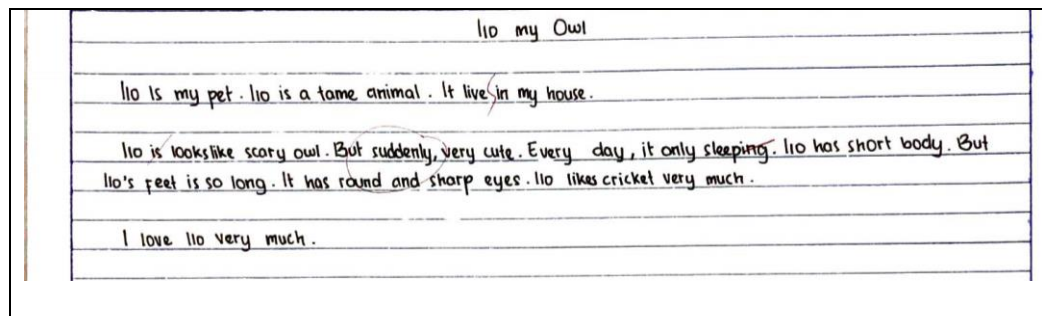 lio my Owl
lio is my pet. lio is a tame animal. It live in my house.
lio is lookslike scary owl. But suddenly, very cute. Every day, it only sleeping. lio has short body. But
lio's feet is so long. It has round and sharp eyes. lio likes cricket very much.
I love lio very much.